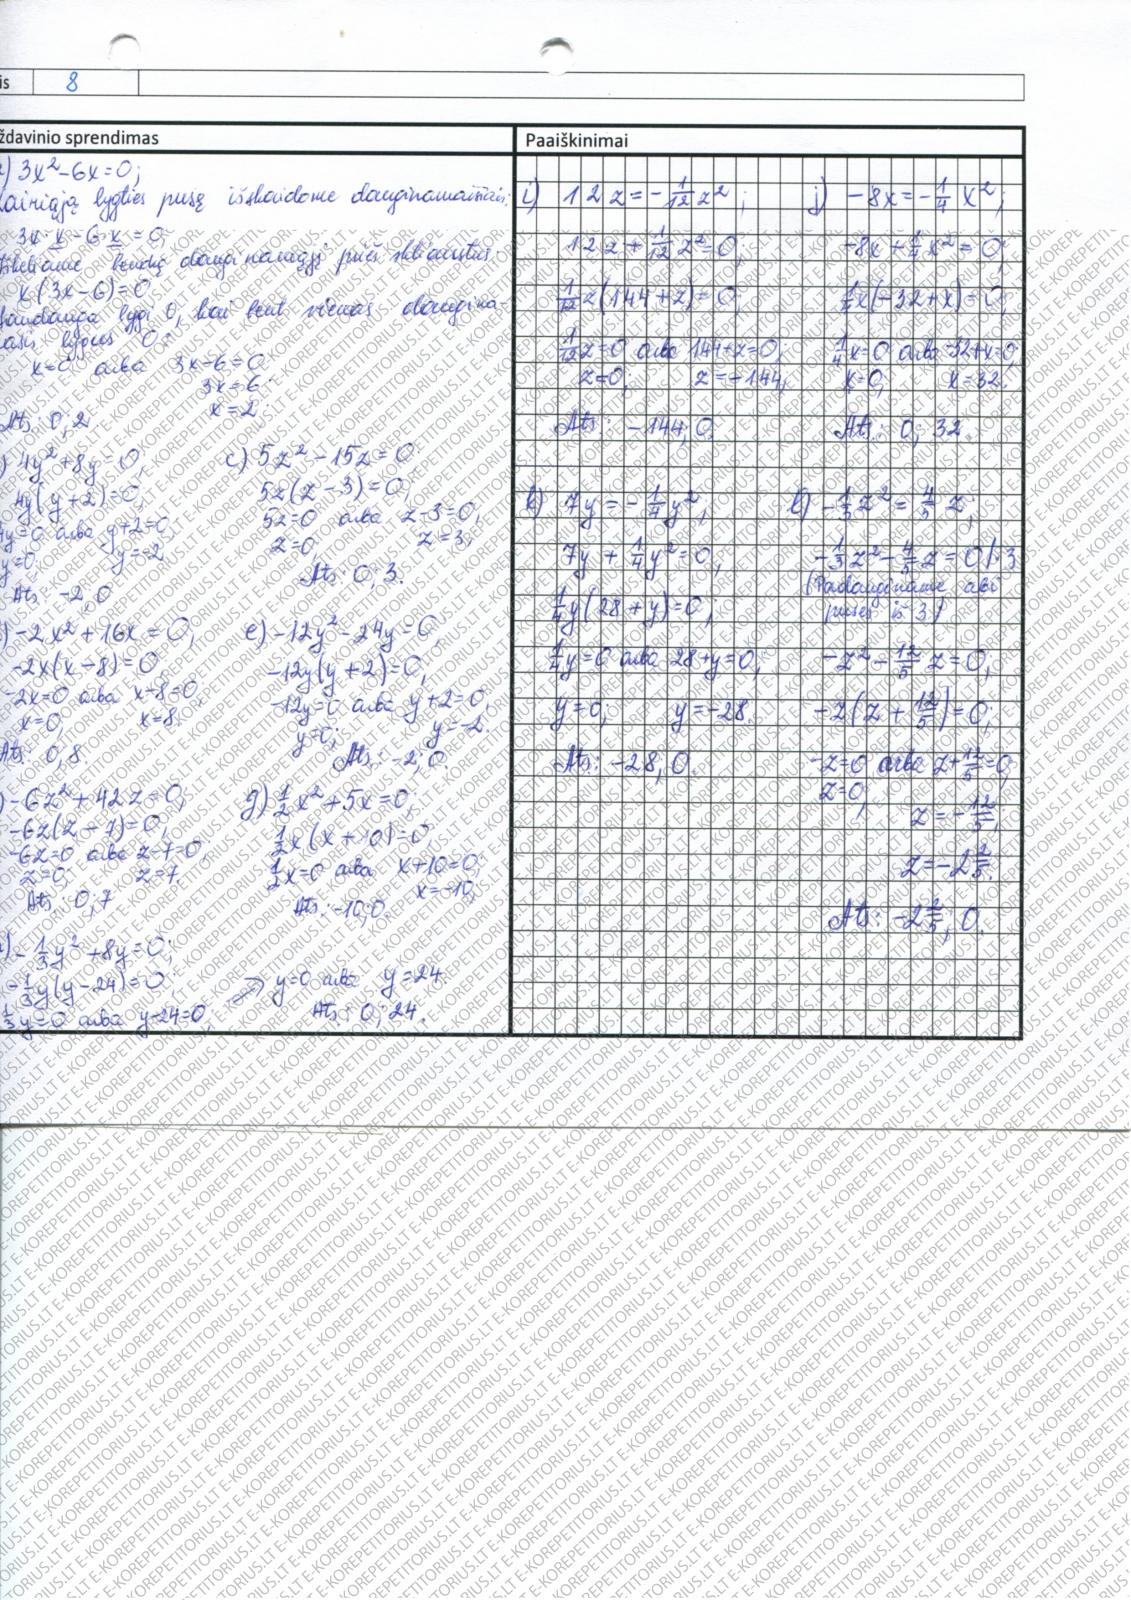 is 8
ždavinio sprendimas
) 3x² - 6x = 0;
airiąją lygties pusę išskaidome dauginamaisiais:
3x·x - 6·x = 0;
škeliame bendrą dauginamąjį prieš skliaustus:
x(3x - 6) = 0
andauga lygi 0, kai bent vienas daugina
asis lygus 0:
x=0 arba 3x-6=0
3x=6;
x=2
Ats.: 0; 2
) 4y² + 8y = 0;
4y(y+2) = 0;
y=0 arba y+2=0;
y=0; y=-2
Ats.: -2; 0
c) 5z² - 15z = 0;
5z(z-3) = 0;
5z=0 arba z-3=0;
z=0; z=3;
Ats.: 0; 3.
) -2x² + 16x = 0;
-2x(x-8) = 0
-2x=0 arba x-8=0;
x=0; x=8;
Ats.: 0; 8
e) -12y² - 24y = 0;
-12y(y+2) = 0;
-12y=0 arba y+2=0;
y=0; y=-2.
Ats.: -2; 0.
) -6z² + 42z = 0;
-6z(z-7) = 0;
-6z=0 arba z-7=0;
z=0; z=7.
Ats.: 0; 7
g) 1/2x² + 5x = 0;
1/2x(x+10) = 0;
1/2x=0 arba x+10=0;
x=-10;
Ats.: -10; 0.
) -1/3y² + 8y = 0;
-1/3y(y-24) = 0;
1/3y=0 arba y-24=0;
=> y=0 arba y=24.
Ats.: 0; 24.
Paaiškinimai
i) 12z = -1/12z²;
12z + 1/12z² = 0;
1/12z(144+z) = 0;
1/12z=0 arba 144+z=0;
z=0; z=-144;
Ats.: -144; 0.
j) -8x = -1/4x²;
-8x + 1/4x² = 0;
1/4x(-32+x) = 0;
1/4x=0 arba -32+x=0;
x=0; x=32.
Ats.: 0; 32.
k) 7y = -1/4y²;
7y + 1/4y² = 0;
1/4y(28+y) = 0;
1/4y=0 arba 28+y=0;
y=0; y=-28.
Ats.: -28; 0.
l) -1/3z² = 4/5z;
-1/3z² - 4/5z = 0 |·3
(Padauginame abi
puses iš 3)
-z² - 12/5z = 0;
-z(z + 12/5) = 0;
-z=0 arba z+12/5=0
z=0;
z=-12/5;
z=-2 2/5.
Ats.: -2 2/5; 0.
E-KOREPETITORIUS.LT